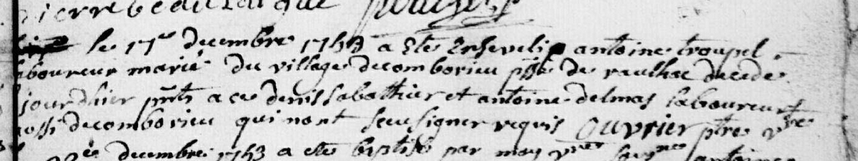 pierre
le 17e décembre 1743 a été Enseveli antoine troupel
laboureur marié du village decomborieu psse de raulhac decedé
jourdhier pnts a ce denis sabathier et antoine delmas laboureurs
aussi decomborieu qui nont sceu signer requis Ouvrier ptre vre
decembre 1743 a eté baptisé par moy vre antoine